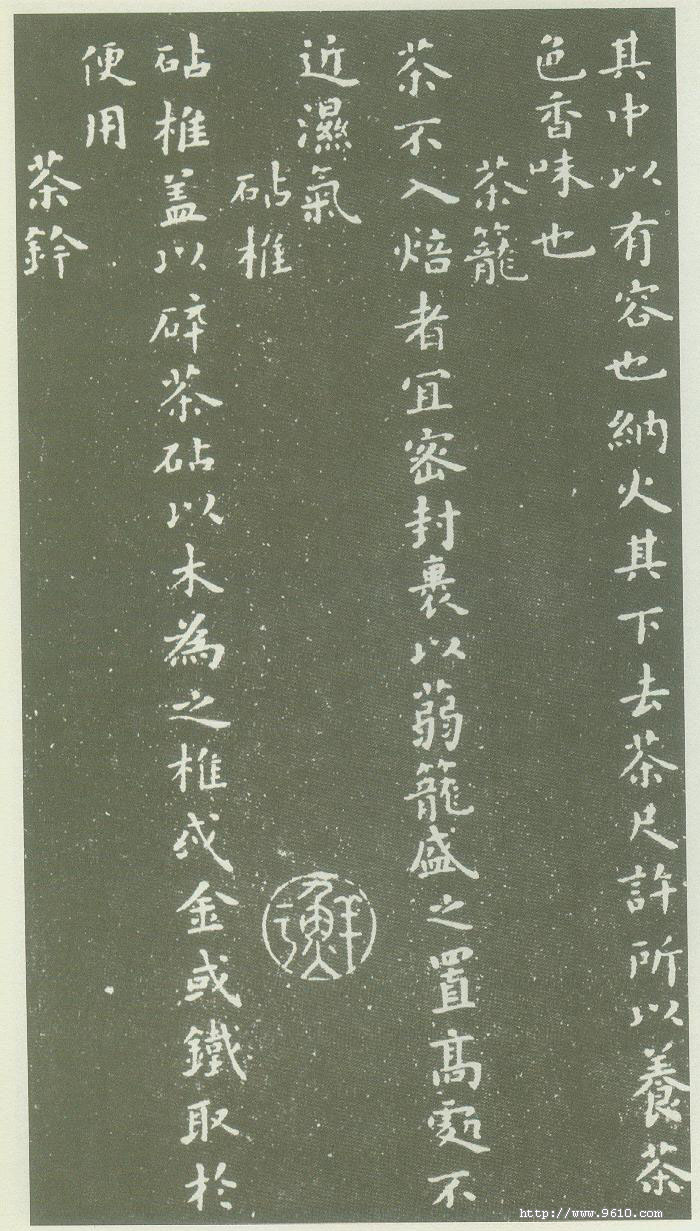 其中以有容也納火其下去茶尺許所以養茶
色香味也
茶籠
茶不入焙者宜密封裹以蒻籠盛之置高處不
近濕氣
砧椎
砧椎蓋以碎茶砧以木為之椎或金或鐵取於
便用
茶鈐
http://www.9610.com